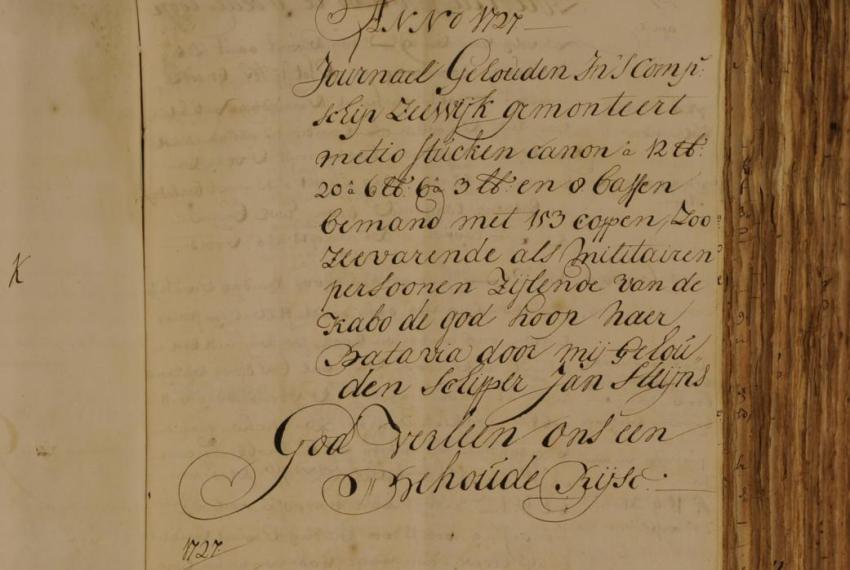 ANNO 1727
Journael Gehouden In'S Comp:
schip Zeewijk gemonteert
met 10 stucken canon â 12 lb:
20 â 6 lb: 6 â 3 lb: en 8 bassen
bemand met 153 coppen, Zoo
Zeevarende als Militairen
persoonen Zijlende van de
Kabo de god hoop naer
Batavia door mij gehou„
den Schipper Jan Steijns
God verleen ons een
Behoude Rijse:
1727